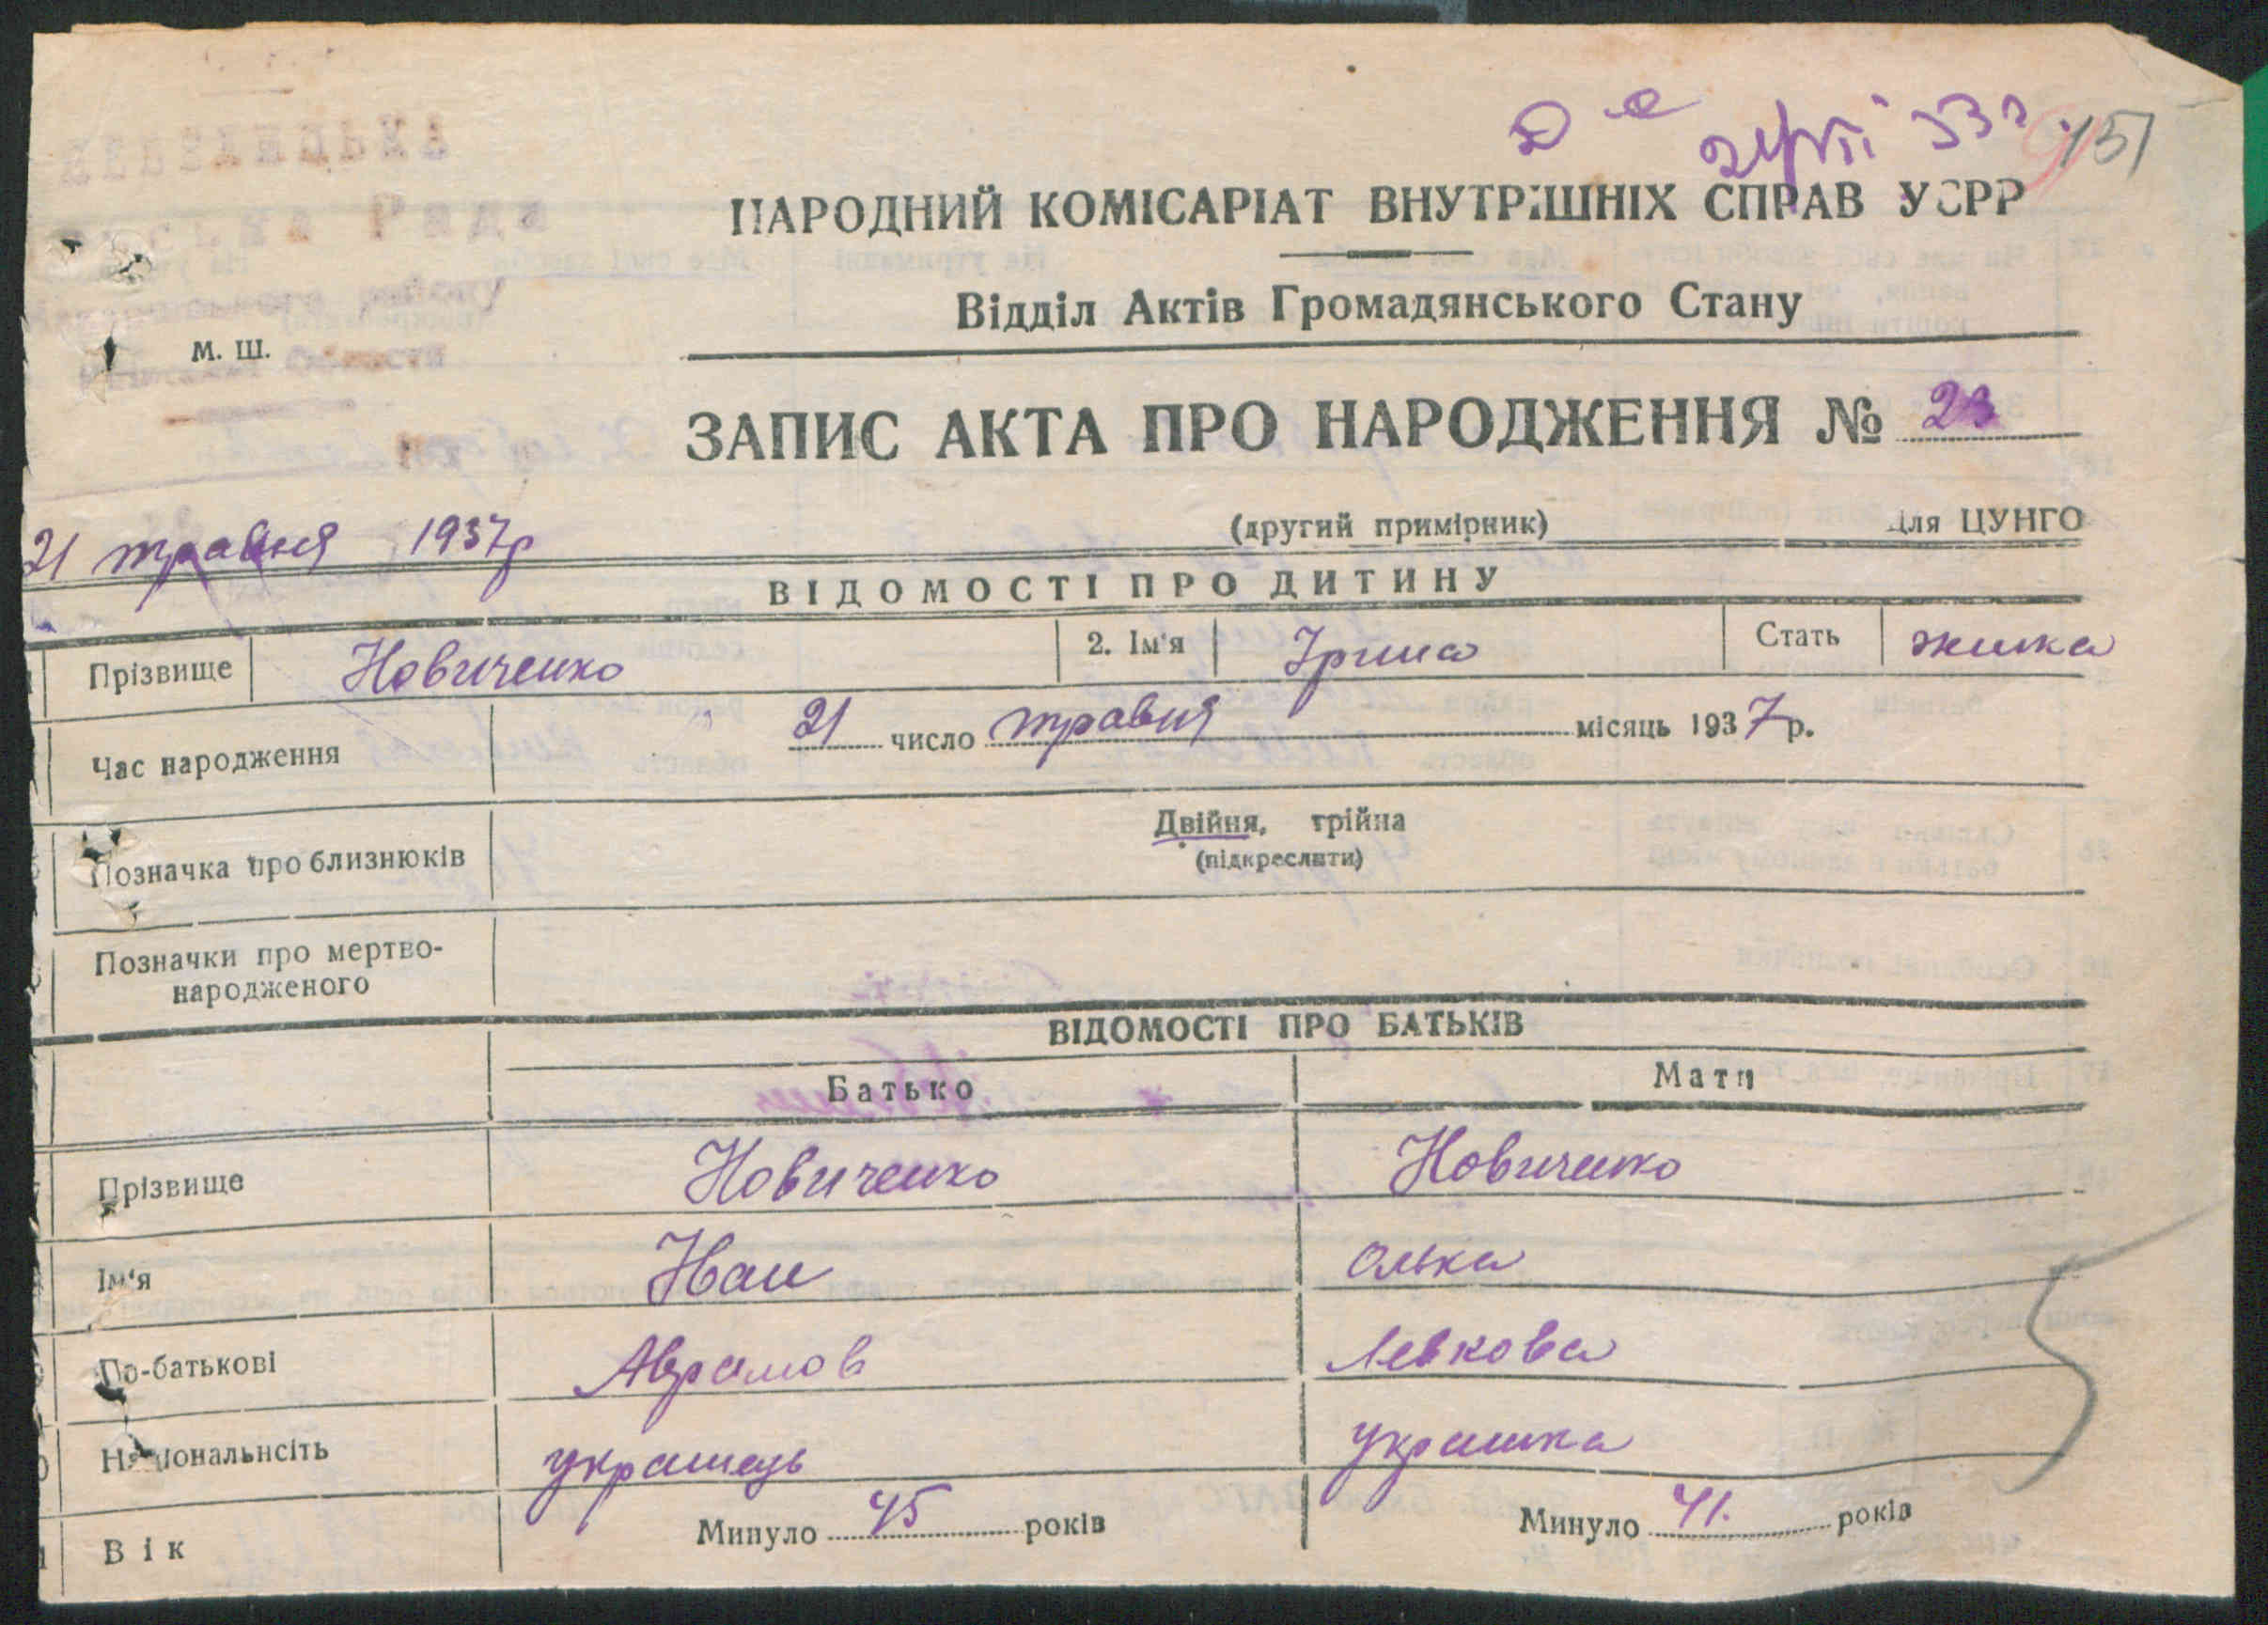 151
НАРОДНИЙ КОМІСАРІАТ ВНУТРІШНІХ СПРАВ УСРР
Відділ Актів Громадянського Стану
М. Ш.
ЗАПИС АКТА ПРО НАРОДЖЕННЯ № 23
(другий примірник) Для ЦУНГО
21 травня 1937р
ВІДОМОСТІ ПРО ДИТИНУ
Прізвище Новиченко 2. Ім'я Ірина Стать жинка
Час народження 21 число травня місяць 1937р.
Позначка про близнюків Двійня, трійна
(підкреслити)
Позначки про мертво-
народженого
ВІДОМОСТІ ПРО БАТЬКІВ
Батько Мати
Прізвище Новиченко Новиченко
Ім'я Иван Олька
По-батькові Аврамов Левкова
Національнсіть украинець украинка
Вік Минуло 45 років Минуло 41. років